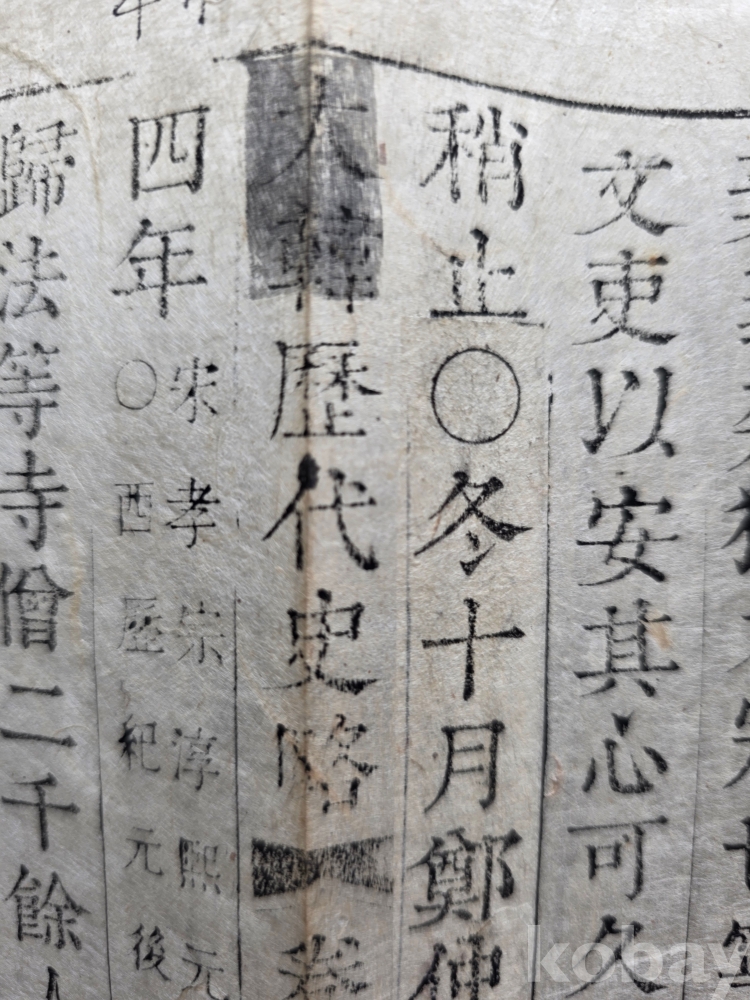 文吏以安其心可久
稍止○冬十月鄭仲
大韓歷代史略 卷
四年
宋孝宗淳熙元
○西歷紀元後
歸法等寺僧二千餘人
kobay